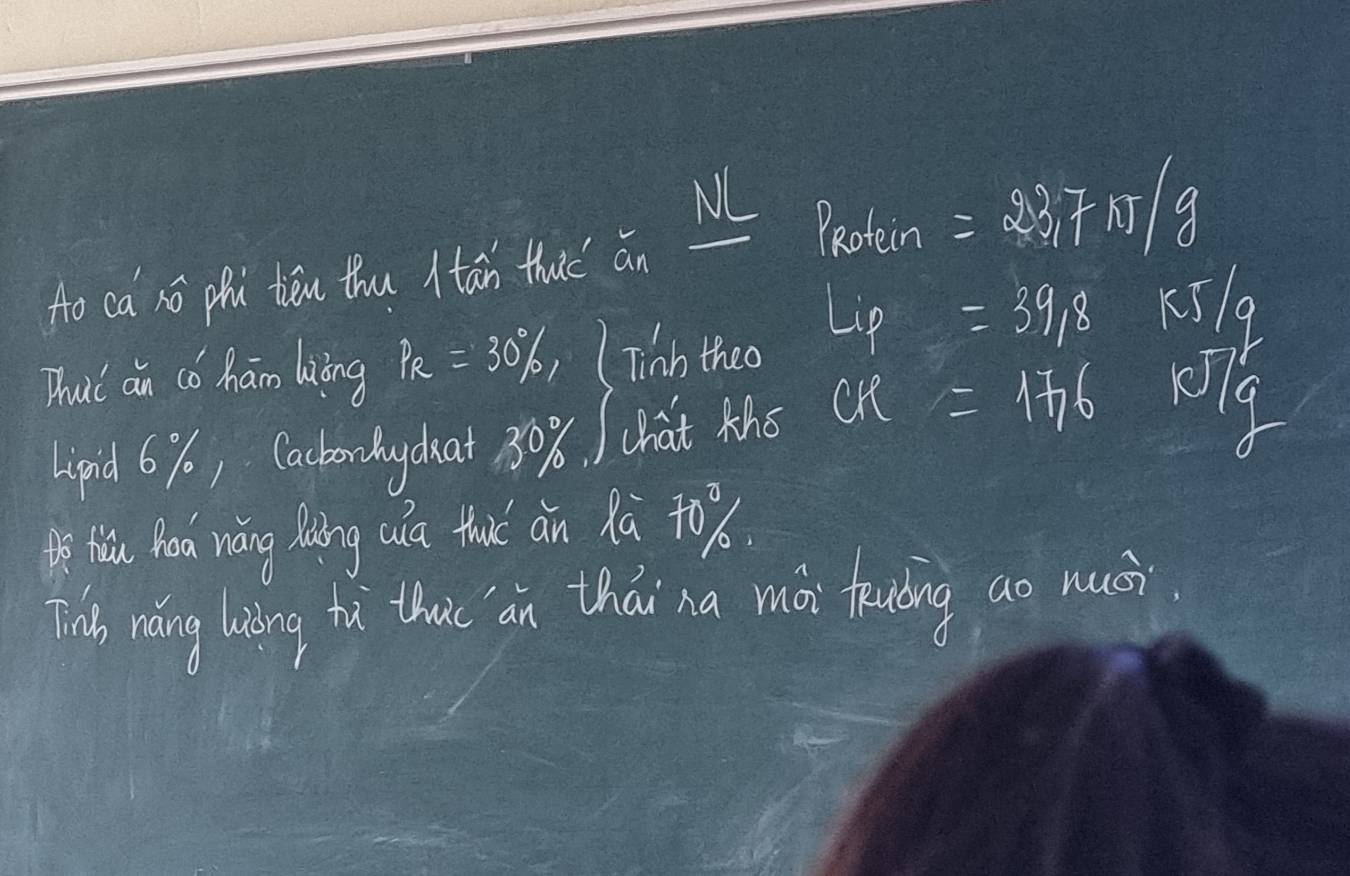 Ao cá rô phi tiêu thụ 1 tấn thức ăn
Thức ăn có hàm lượng PR = 30%,
Lipid 6%, Cacbonhydrat 30%.
} Tính theo
chất khô
Độ tiêu hoá năng lượng của thức ăn là 70%.
Tính năng lượng từ thức ăn thải ra môi trường ao nuôi.
NL Protein = 23,7 KJ/g
Lip = 39,8 KJ/g
CH = 17,6 KJ/g